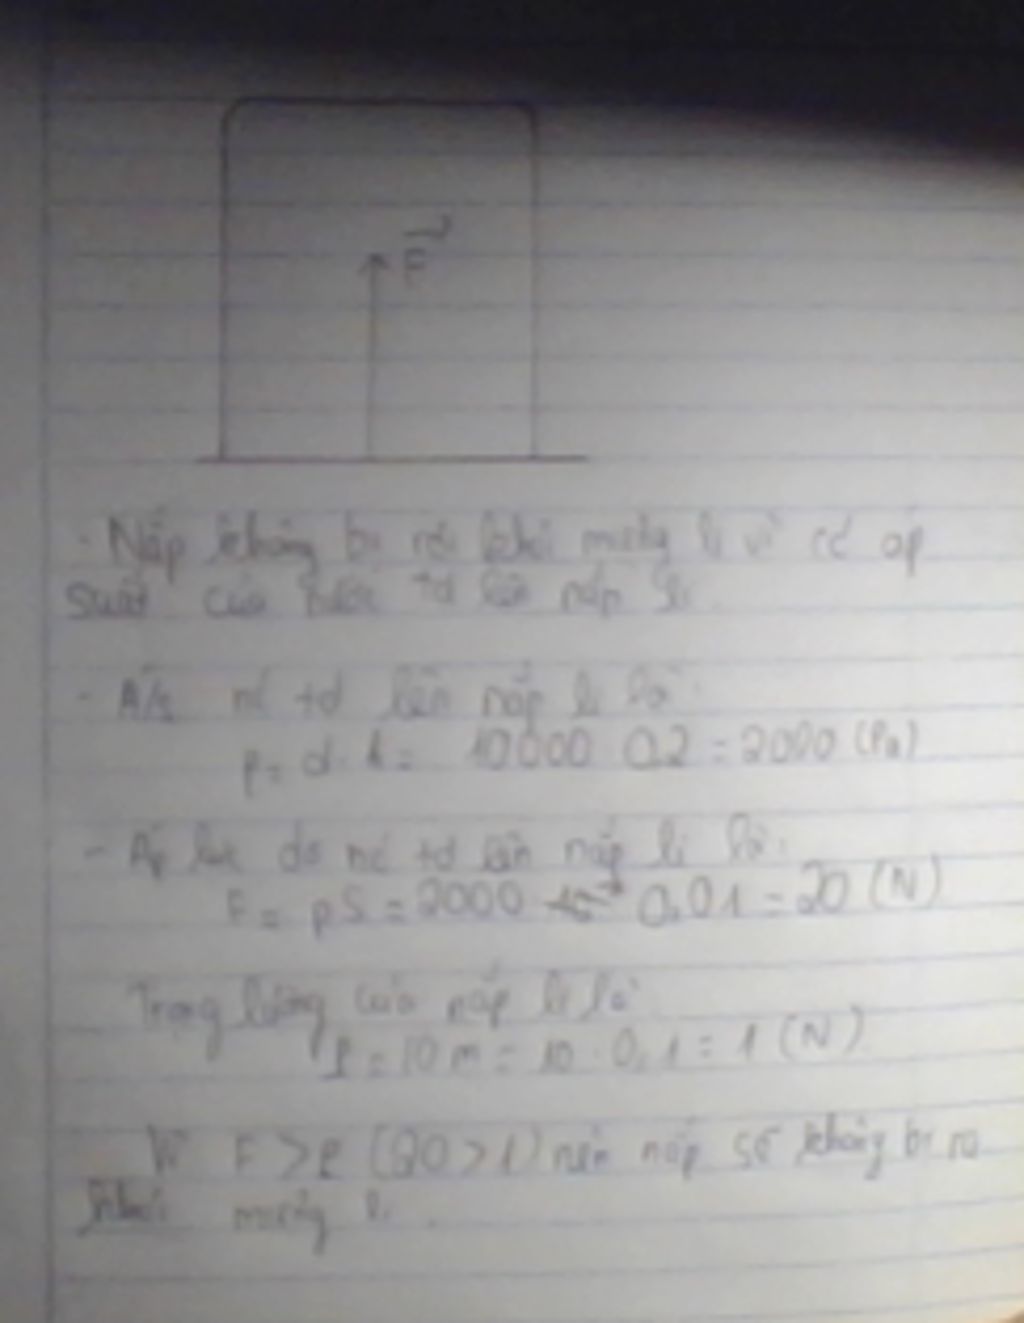 F
- Nắp không bị rời khỏi miệng li vì có áp
suất của nước td lên nắp li.
- A/s nc td lên nắp li là:
p = d . h = 10000 0,2 = 2000 (Pa)
- Áp lực do nc td lên nắp li là:
F = pS = 2000 0,01 = 20 (N)
Trọng lượng của nắp li là
P = 10 m = 10 . 0,1 = 1 (N)
Vì F > P (20 > 1) nên nắp sẽ không bị
khỏi miệng li.